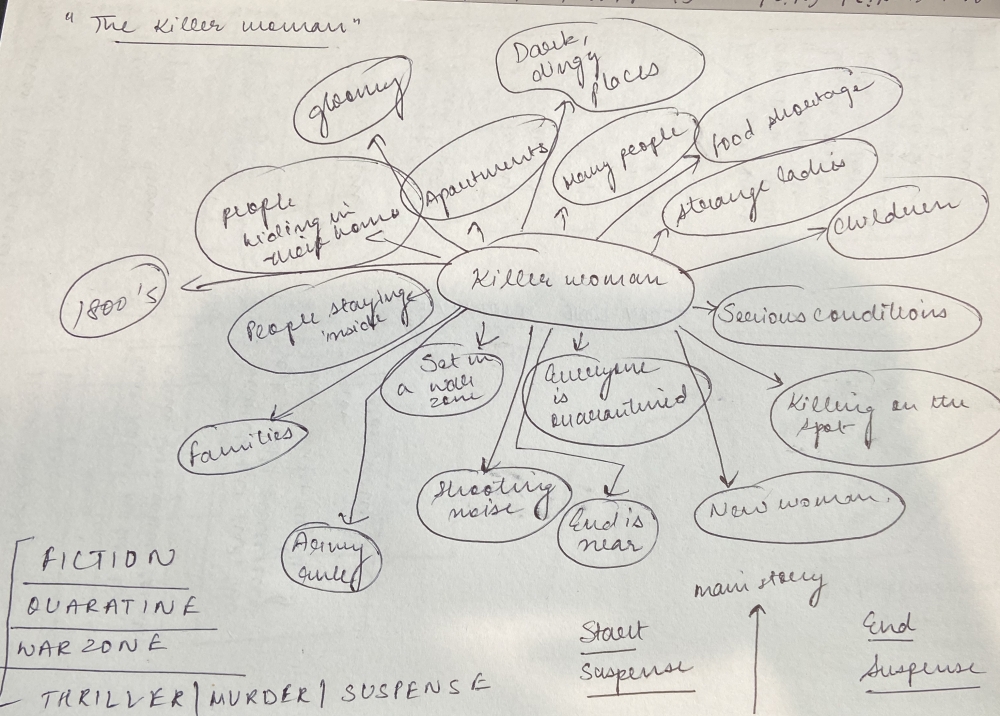 "The Killer woman"
Dark,
dingy
places
gloomy
food shortage
Apartments
Many people
strange ladies
people
hiding in
their home
Children
Killer woman
1800's
People staying
inside
Serious conditions
Set in
a war
zone
Everyone
is
quarantined
Killing on the
spot
families
Shooting
noise
New woman.
End is
near
Army
rule
FICTION
QUARATINE
WAR ZONE
THRILLER/MURDER/ SUSPENSE
main story
Start
Suspense
End
Suspense